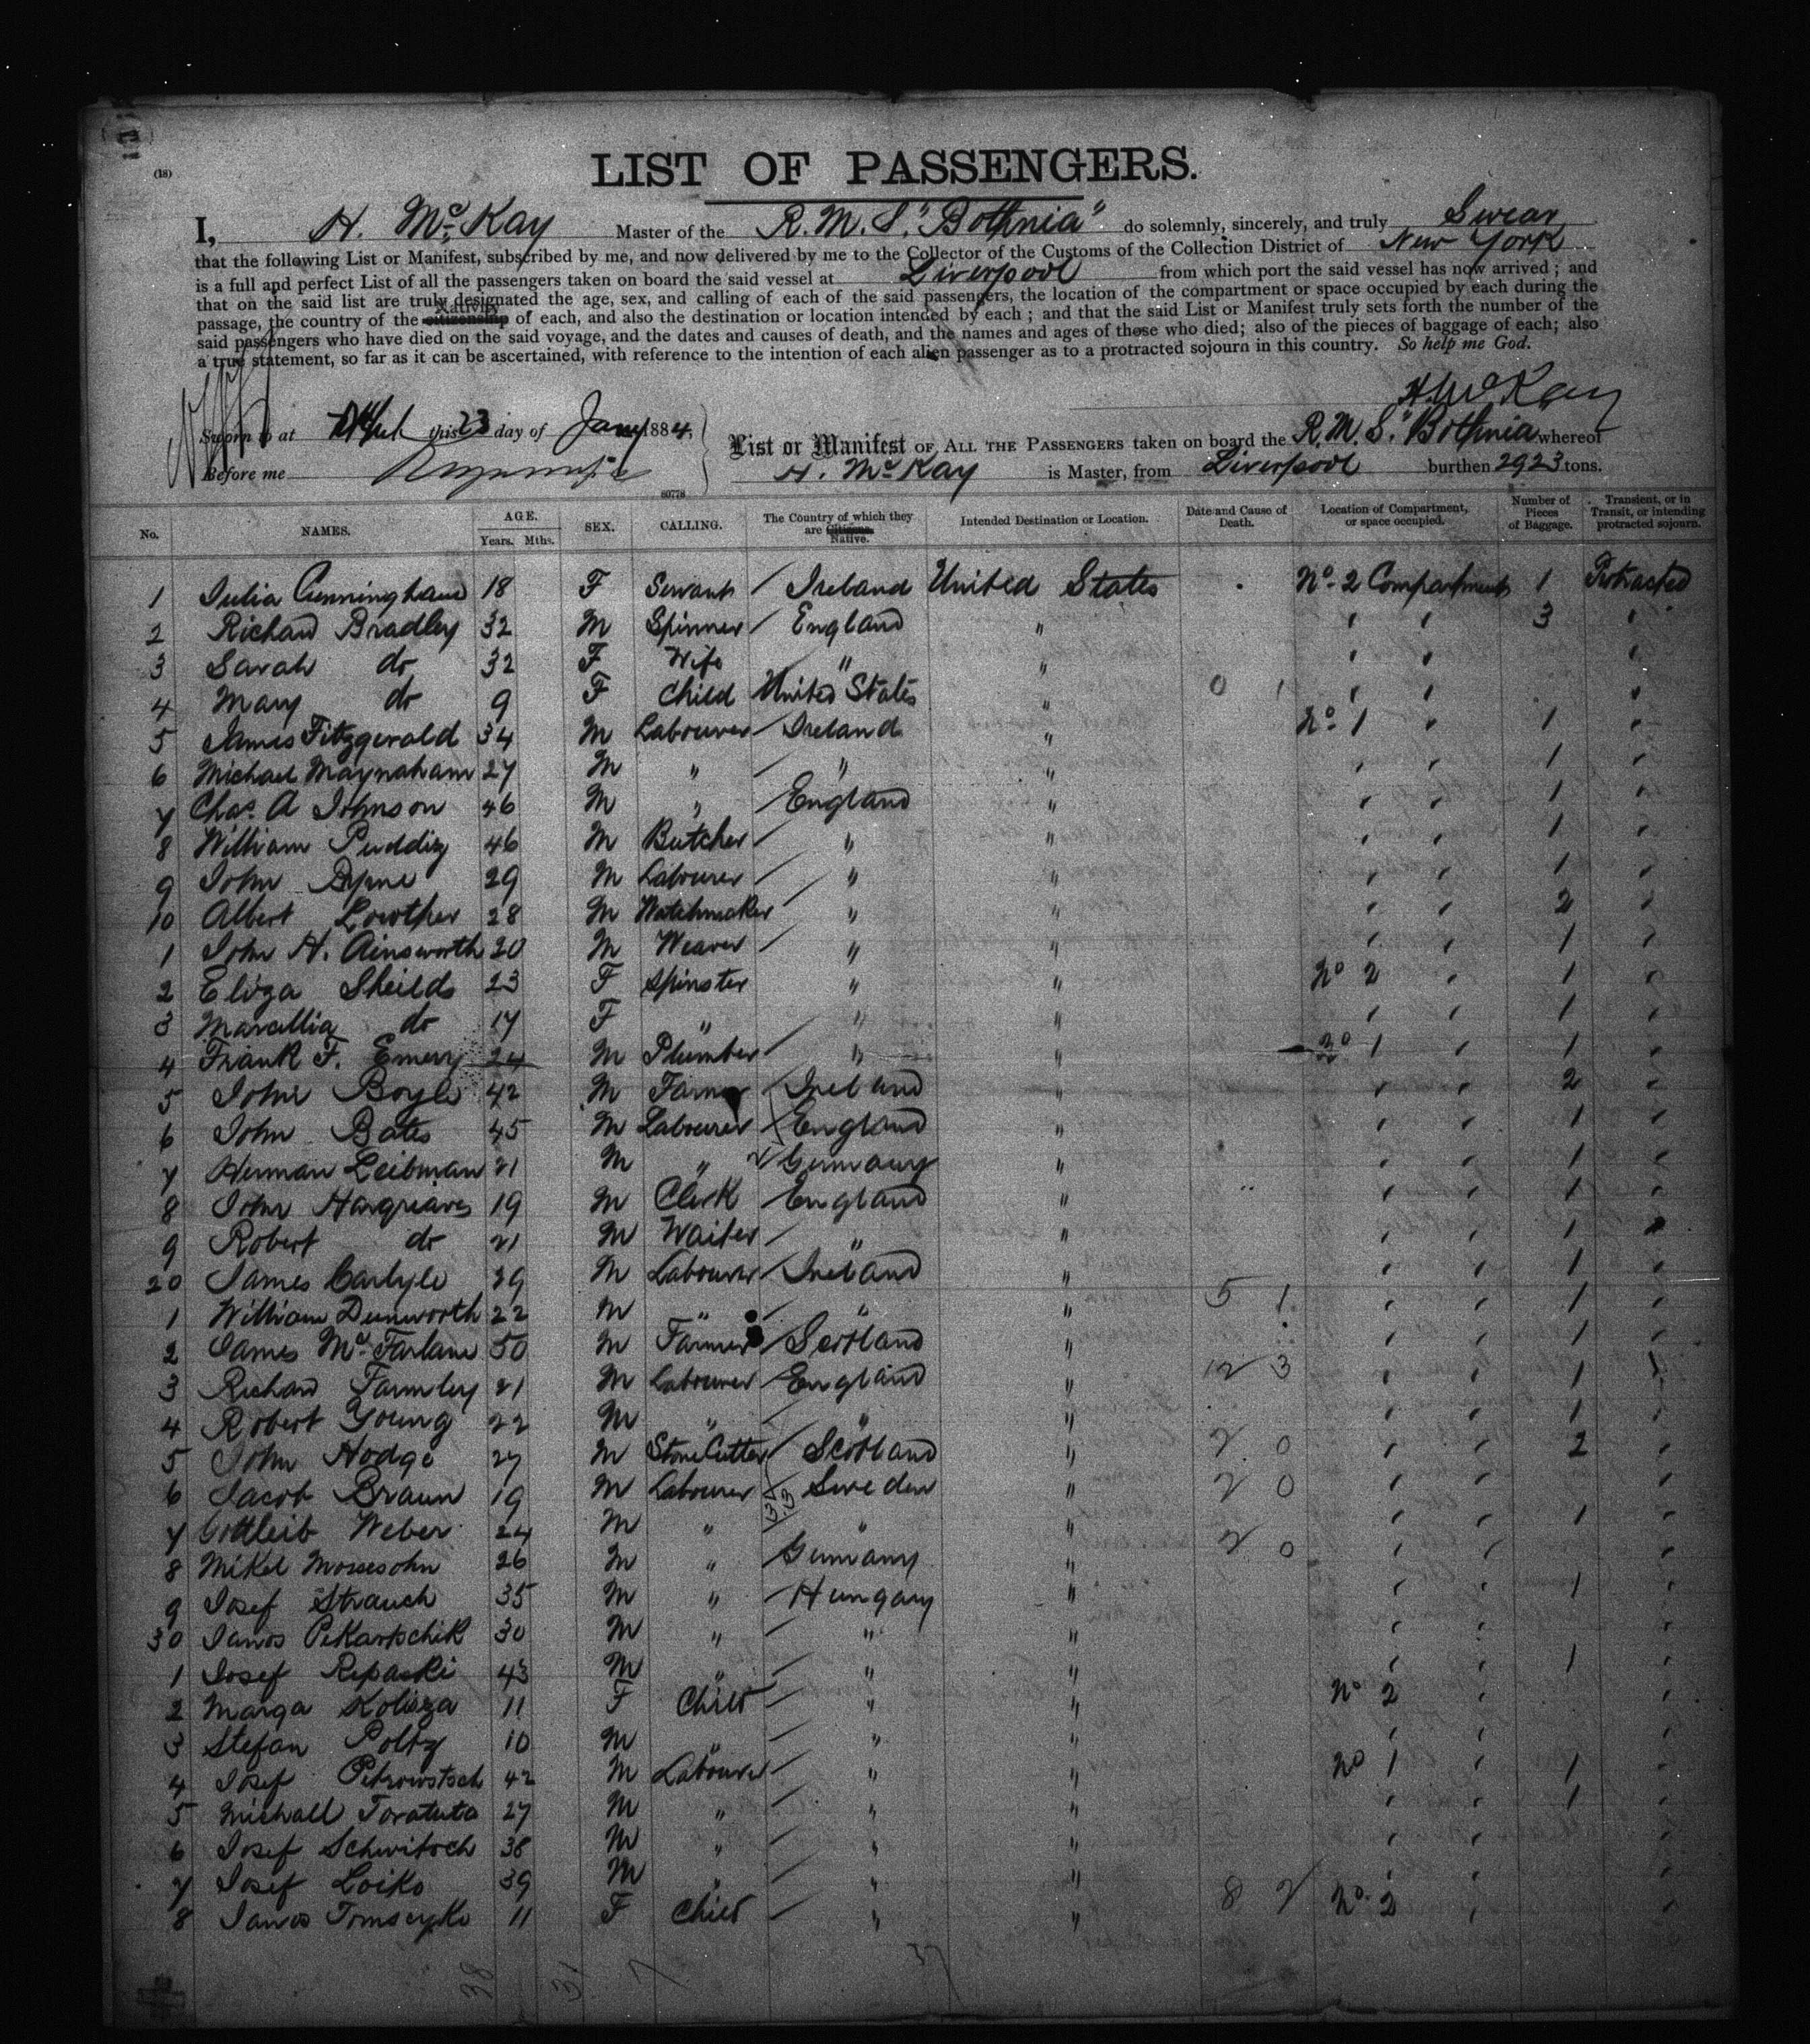 (18)
LIST OF PASSENGERS.
I, H. McKay Master of the R. M. S. "Bothnia" do solemnly, sincerely, and truly Swear
that the following List or Manifest, subscribed by me, and now delivered by me to the Collector of the Customs of the Collection District of New York
is a full and perfect List of all the passengers taken on board the said vessel at Liverpool from which port the said vessel has now arrived; and
that on the said list are truly designated the age, sex, and calling of each of the said passengers, the location of the compartment or space occupied by each during the
passage, the country of the citizenship Nativity of each, and also the destination or location intended by each; and that the said List or Manifest truly sets forth the number of the
said passengers who have died on the said voyage, and the dates and causes of death, and the names and ages of those who died; also of the pieces of baggage of each; also
a true statement, so far as it can be ascertained, with reference to the intention of each alien passenger as to a protracted sojourn in this country. So help me God.
H. McKay
Sworn to at this 23 day of Jany 1884,
Before me
List or Manifest OF ALL THE PASSENGERS taken on board the R. M. S. "Bothnia whereof
H. McKay is Master, from Liverpool burthen 2923 tons.
60778
No. NAMES. AGE. Years. Mths. SEX. CALLING. The Country of which they are Citizens. Native. Intended Destination or Location. Date and Cause of Death. Location of Compartment, or space occupied. Number of Pieces of Baggage. Transient, or in Transit, or intending protracted sojourn.
1 Julia Cunningham 18 F Servant / Ireland United States No. 2 Compartment 1 Protracted
2 Richard Bradley 32 M Spinner / England " " " 3 "
3 Sarah do 32 F Wife " " " " "
4 Mary do 9 F Child United States " 0 1 " " "
5 James Fitzgerald 34 M Labourer / Ireland " No. 1 " 1 "
6 Michael Maynaham 27 M " / " " " " 1 "
7 Chas. A Johnson 46 M " / England " " " 1 "
8 William Pudding 46 M Butcher / " " " " 1 "
9 John Byrne 29 M Labourer / " " " " 1 "
10 Albert Lowther 28 M Watchmaker / " " " " 2 "
1 John H. Ainsworth 20 M Weaver / " " " " 1 "
2 Eliza Sheilds 23 F Spinster " " No 2 " 1 "
3 Marcellia do 17 F " " " " " 1 "
4 Frank F. Emery 24 M Plumber / " " No 1 " 1 "
5 John Boyle 42 M Farmer / Ireland " " " 2 "
6 John Bates 45 M Labourer / England " " " 1 "
7 Herman Leibman 21 M " Germany " " " 1 "
8 John Hargreaves 19 M Clerk / England " " " 1 "
9 Robert do 21 M Waiter / " " " " 1 "
20 James Carlyle 29 M Labourer / Ireland " " " 1 "
1 William Dunworth 22 M " / " " 5 1 " " 1 "
2 James McFarlane 50 M Farmer / Scotland " " " 1 "
3 Richard Farmley 21 M Labourer / England " 12 3 " " 1 "
4 Robert Young 22 M " / " " " " 1 "
5 John Hodge 27 M Stone Cutter / Scotland " 2 0 " " 2 "
6 Jacob Braun 19 M Labourer Sweden " 2 0 " " "
7 Gottleib Weber 24 M " / " " " " 1 "
8 Mikel Mossesohn 26 M " / Germany " 2 0 " " "
9 Josef Strauch 35 M " / Hungary " " " 1 "
30 Janos Pekartschik 30 M " / " " " "
1 Josef Repaski 43 M " / " " " " 1 "
2 Marga Kolisza 11 F Child / " " No 2 " "
3 Stefan Polty 10 M " / " " " "
4 Josef Petrowstsch 42 M Labourer / " " No 1 " 1 "
5 Michall Toratuta 27 M " / " " " " 1 "
6 Josef Schwitsch 38 M " / " " " " "
7 Josef Loiko 39 M " / " " " " "
8 Janos Tomseyko 11 F Child / " " 8 2 No. 2 " "
38 31 7 37